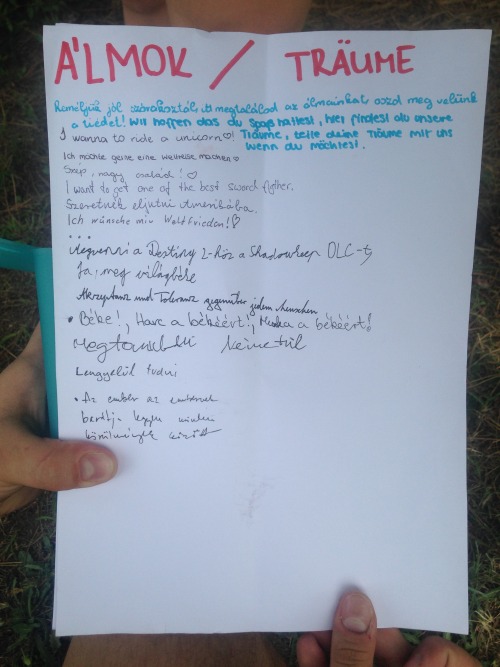 ÁLMOK / TRÄUME
Reméljük jól szórakoztál, itt megtalálod az álmainkat, oszd meg velünk
a tiedet! Wir hoffen das du Spaß hattest, hier findest du unsere
I wanna to ride a unicorn♡! Träume, teile deine Träume mit uns
wenn du möchtest.
Ich möchte gerne eine Weltreise machen♡
Szép, nagy család! ♡
I want to get one of the best sword fighter.
Szeretnék eljutni Amerikába.
Ich wünsche mir Weltfrieden!♡
...
Megvenni a Destiny 2-höz a Shadowkeep DLC-t,
Ja, meg világbéke
Akzeptanz und Toleranz gegenüber jedem Menschen
• Béke!, Harc a békéért!, Munka a békéért!
Megtanulni németül
Lengyelül tudni
• Az ember az embernek
barátja legyen minden
körülmények között